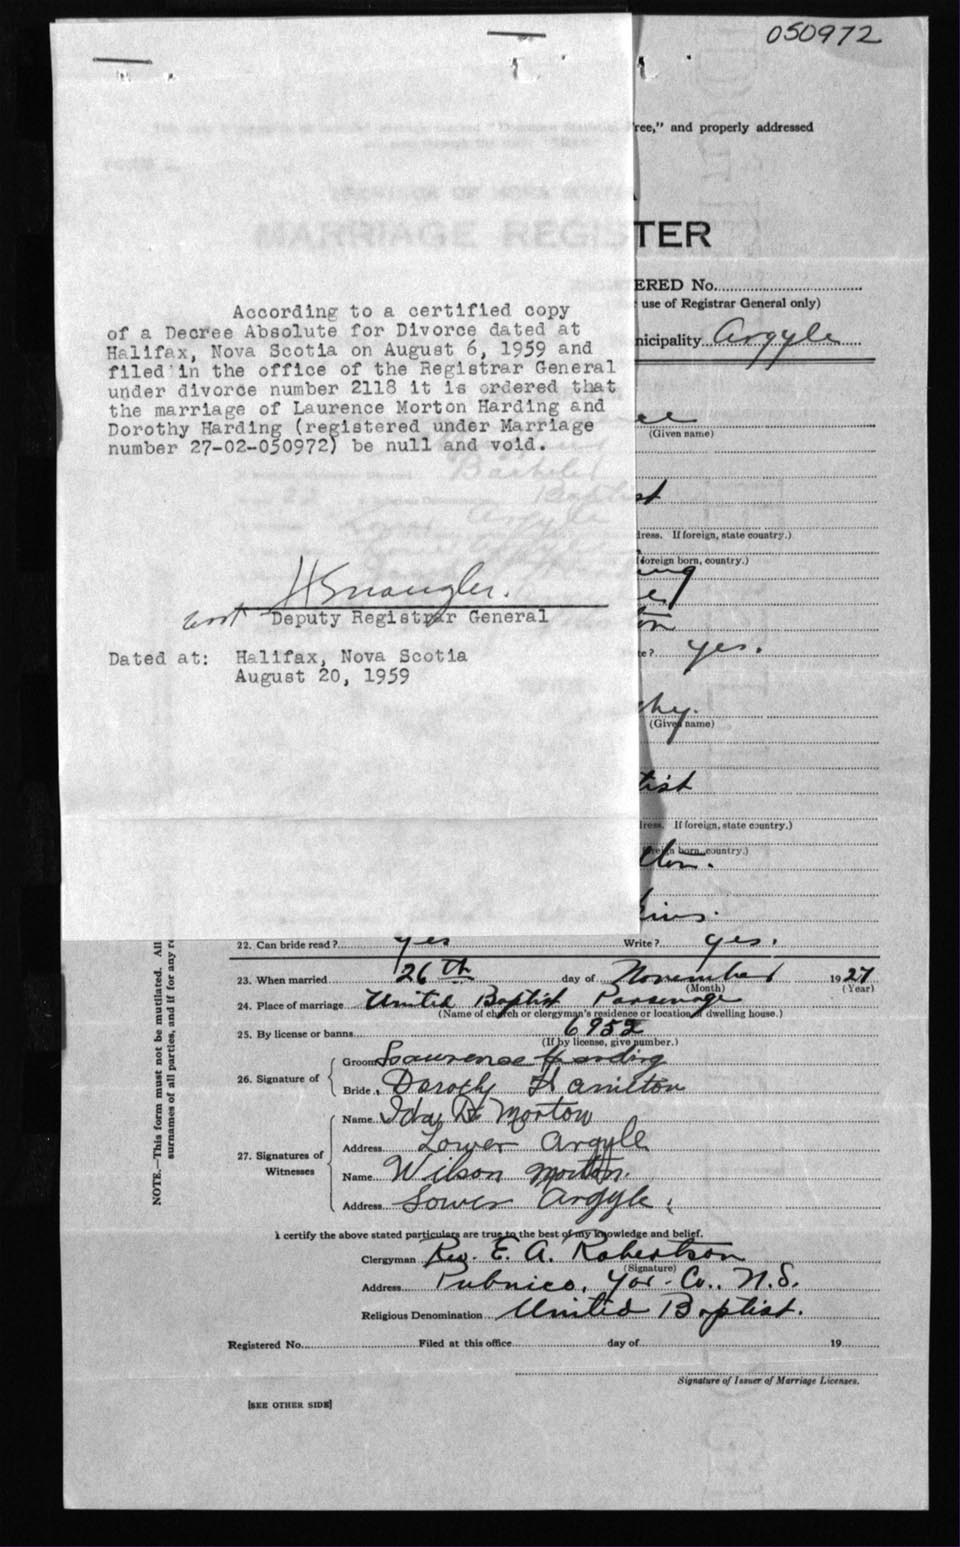 050972
ree," and properly addressed
MARRIAGE REGISTER
ERED No.
use of Registrar General only)
nicipality Argyle
According to a certified copy
of a Decree Absolute for Divorce dated at
Halifax, Nova Scotia on August 6, 1959 and
filed in the office of the Registrar General
under divorce number 2118 it is ordered that
the marriage of Laurence Morton Harding and
Dorothy Harding (registered under Marriage
number 27-02-050972) be null and void.
(Given name)
Bachelor
Baptist
Argyle
ress. If foreign, state country.)
foreign born, country.)
Deputy Registrar General
te? yes.
Dated at: Halifax, Nova Scotia
August 20, 1959
thy.
(Given name)
tist
ress. If foreign, state country.)
eign born, country.)
lton.
kins.
22. Can bride read? yes Write? yes.
23. When married 26th day of November 1927
(Month) (Year)
24. Place of marriage United Baptist Parsonage
(Name of church or clergyman's residence or location of dwelling house.)
25. By license or banns 6952
(If by license, give number.)
26. Signature of
Groom Laurence Harding
Bride Dorothy Hamilton
27. Signatures of Witnesses
Name Ida D. Morton
Address Lower Argyle
Name Wilson Morton.
Address Lower Argyle.
I certify the above stated particulars are true to the best of my knowledge and belief.
Clergyman Rev. E. A. Robertson
(Signature)
Address Pubnico, Yar. Co., N.S.
Religious Denomination United Baptist.
Registered No. Filed at this office day of 19
Signature of Issuer of Marriage Licenses.
[SEE OTHER SIDE]
NOTE.—This form must not be mutilated. All
surnames of all parties, and if for any r